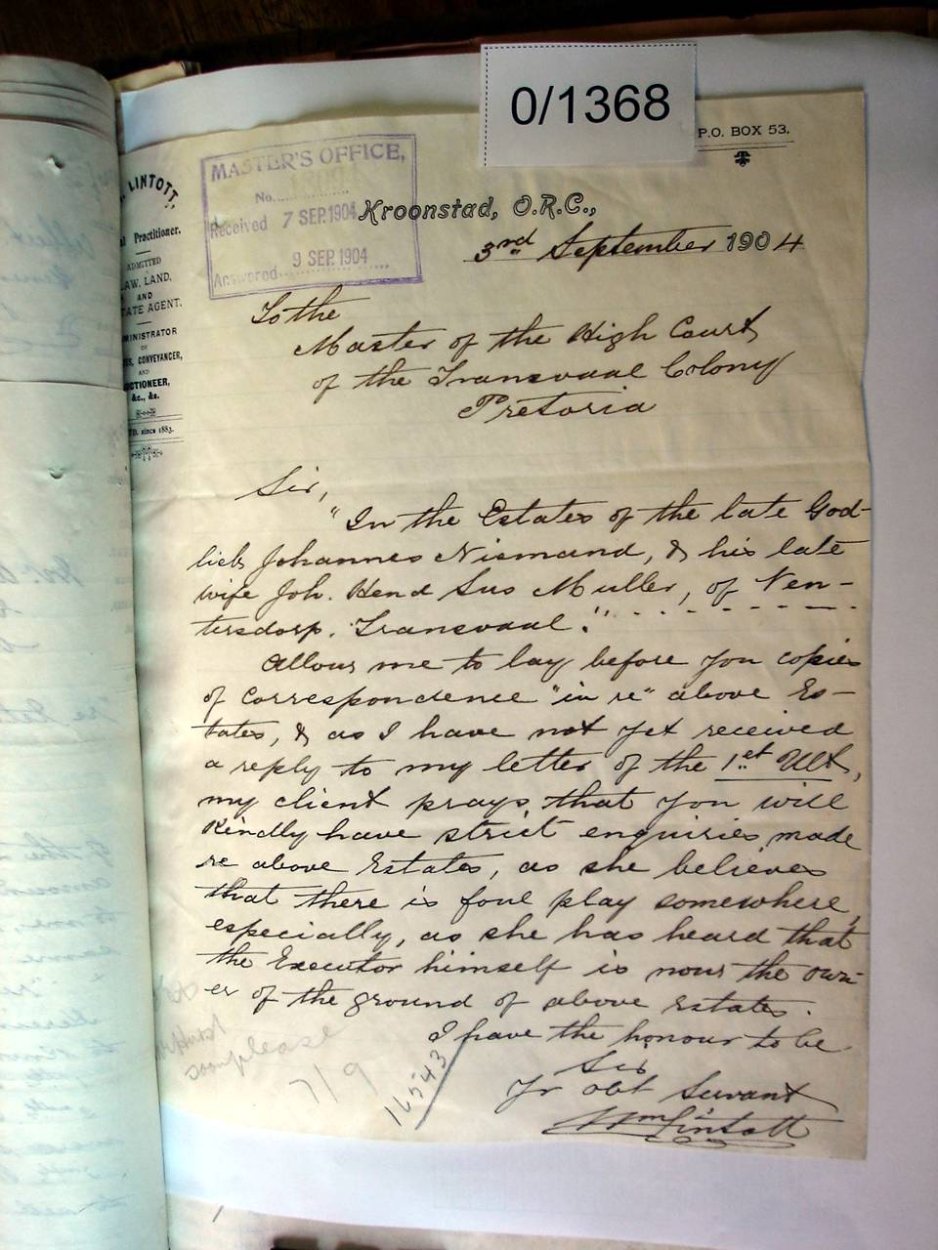 0/1368
P.O. BOX 53.
LINTOTT,
Practitioner.
ADMITTED
LAW, LAND,
AND
ESTATE AGENT.
CONVEYANCER,
AND
AUCTIONEER,
&c., &c.
since 1883.
MASTER'S OFFICE,
No.
Received 7 SEP. 1904
Answered 9 SEP. 1904
Kroonstad, O.R.C.,
3rd September 1904
To the
Master of the High Court
of the Transvaal Colony
Pretoria
Sir,
"In the Estates of the late God-
lieb Johannes Niemand, & his late
wife Joh. Hend Sus Muller, of Ven-
tersdorp. Transvaal."
Allow me to lay before you copies
of correspondence "in re" above Es-
tates, & as I have not yet received
a reply to my letter of the 1st Ult,
my client prays that you will
kindly have strict enquiries made
re above Estates, as she believes
that there is foul play somewhere,
especially, as she has heard that
the Executor himself is now the own-
er of the ground of above Estates.
I have the honour to be
Sir
Yr obt Servant
Wm Lintott
please
7/9
16543